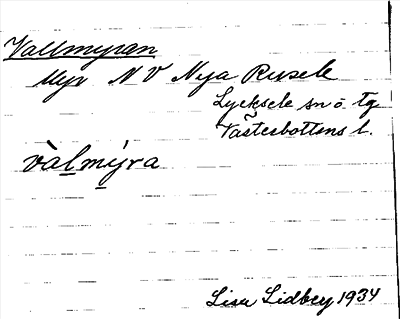 Vallmyran
Myr NV Nya Rusele
Lycksele sn o. tg
Västerbottens l.
vàlmýra
Lisa Lidbey 1934